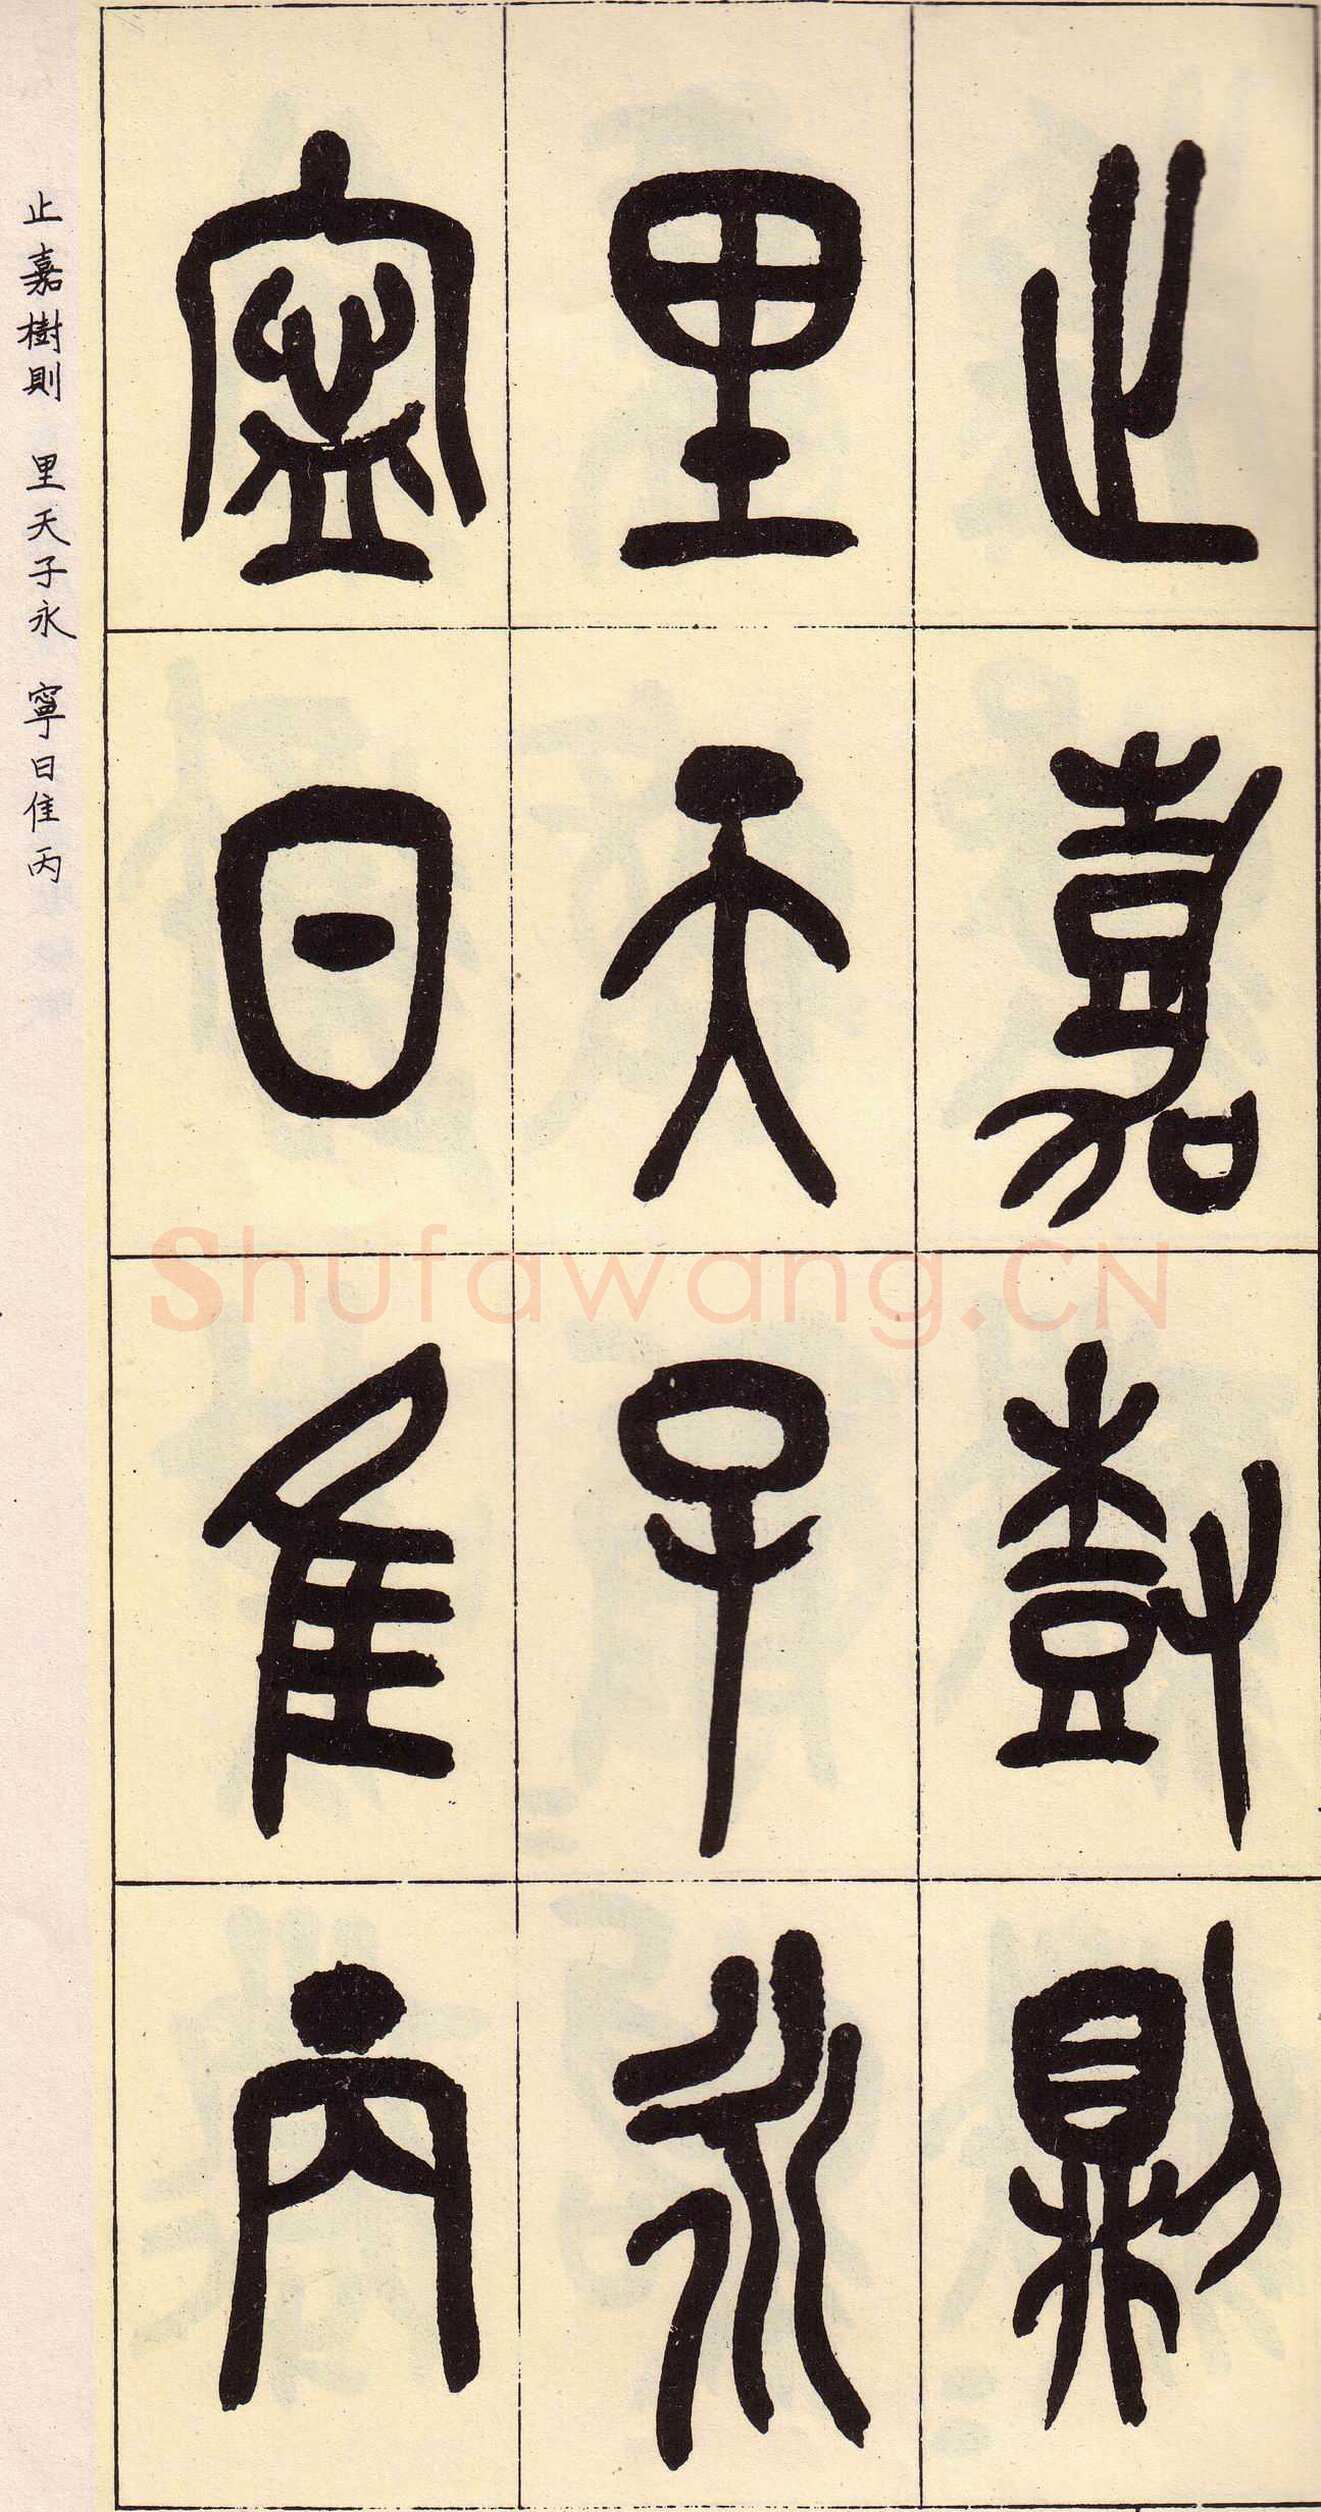 止嘉樹則
里天子永
寍日隹丙
止嘉樹則 里天子永 寧日隹丙
Shufawang.CN